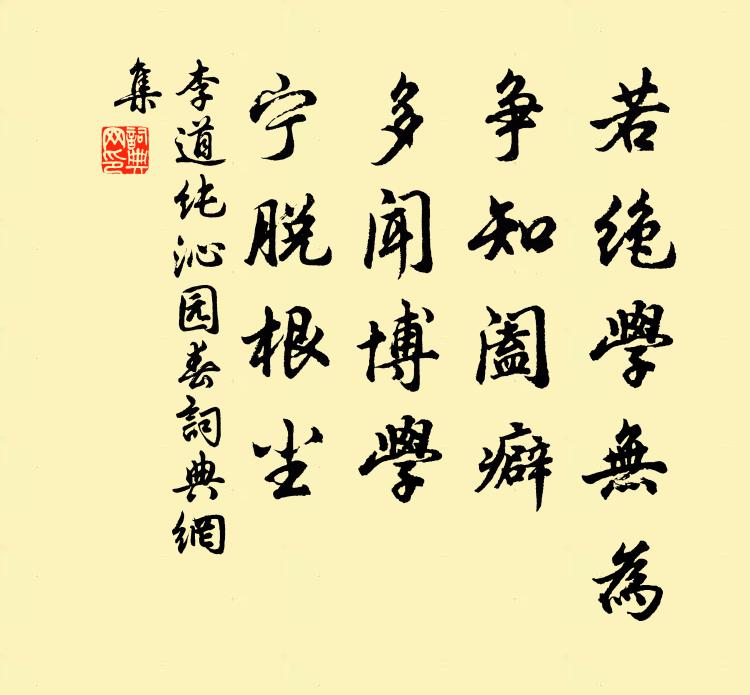 若绝學無為
争知阖癖
多闻博學
宁脱根尘
李道纯沁园春詞典網
集
詞典网印